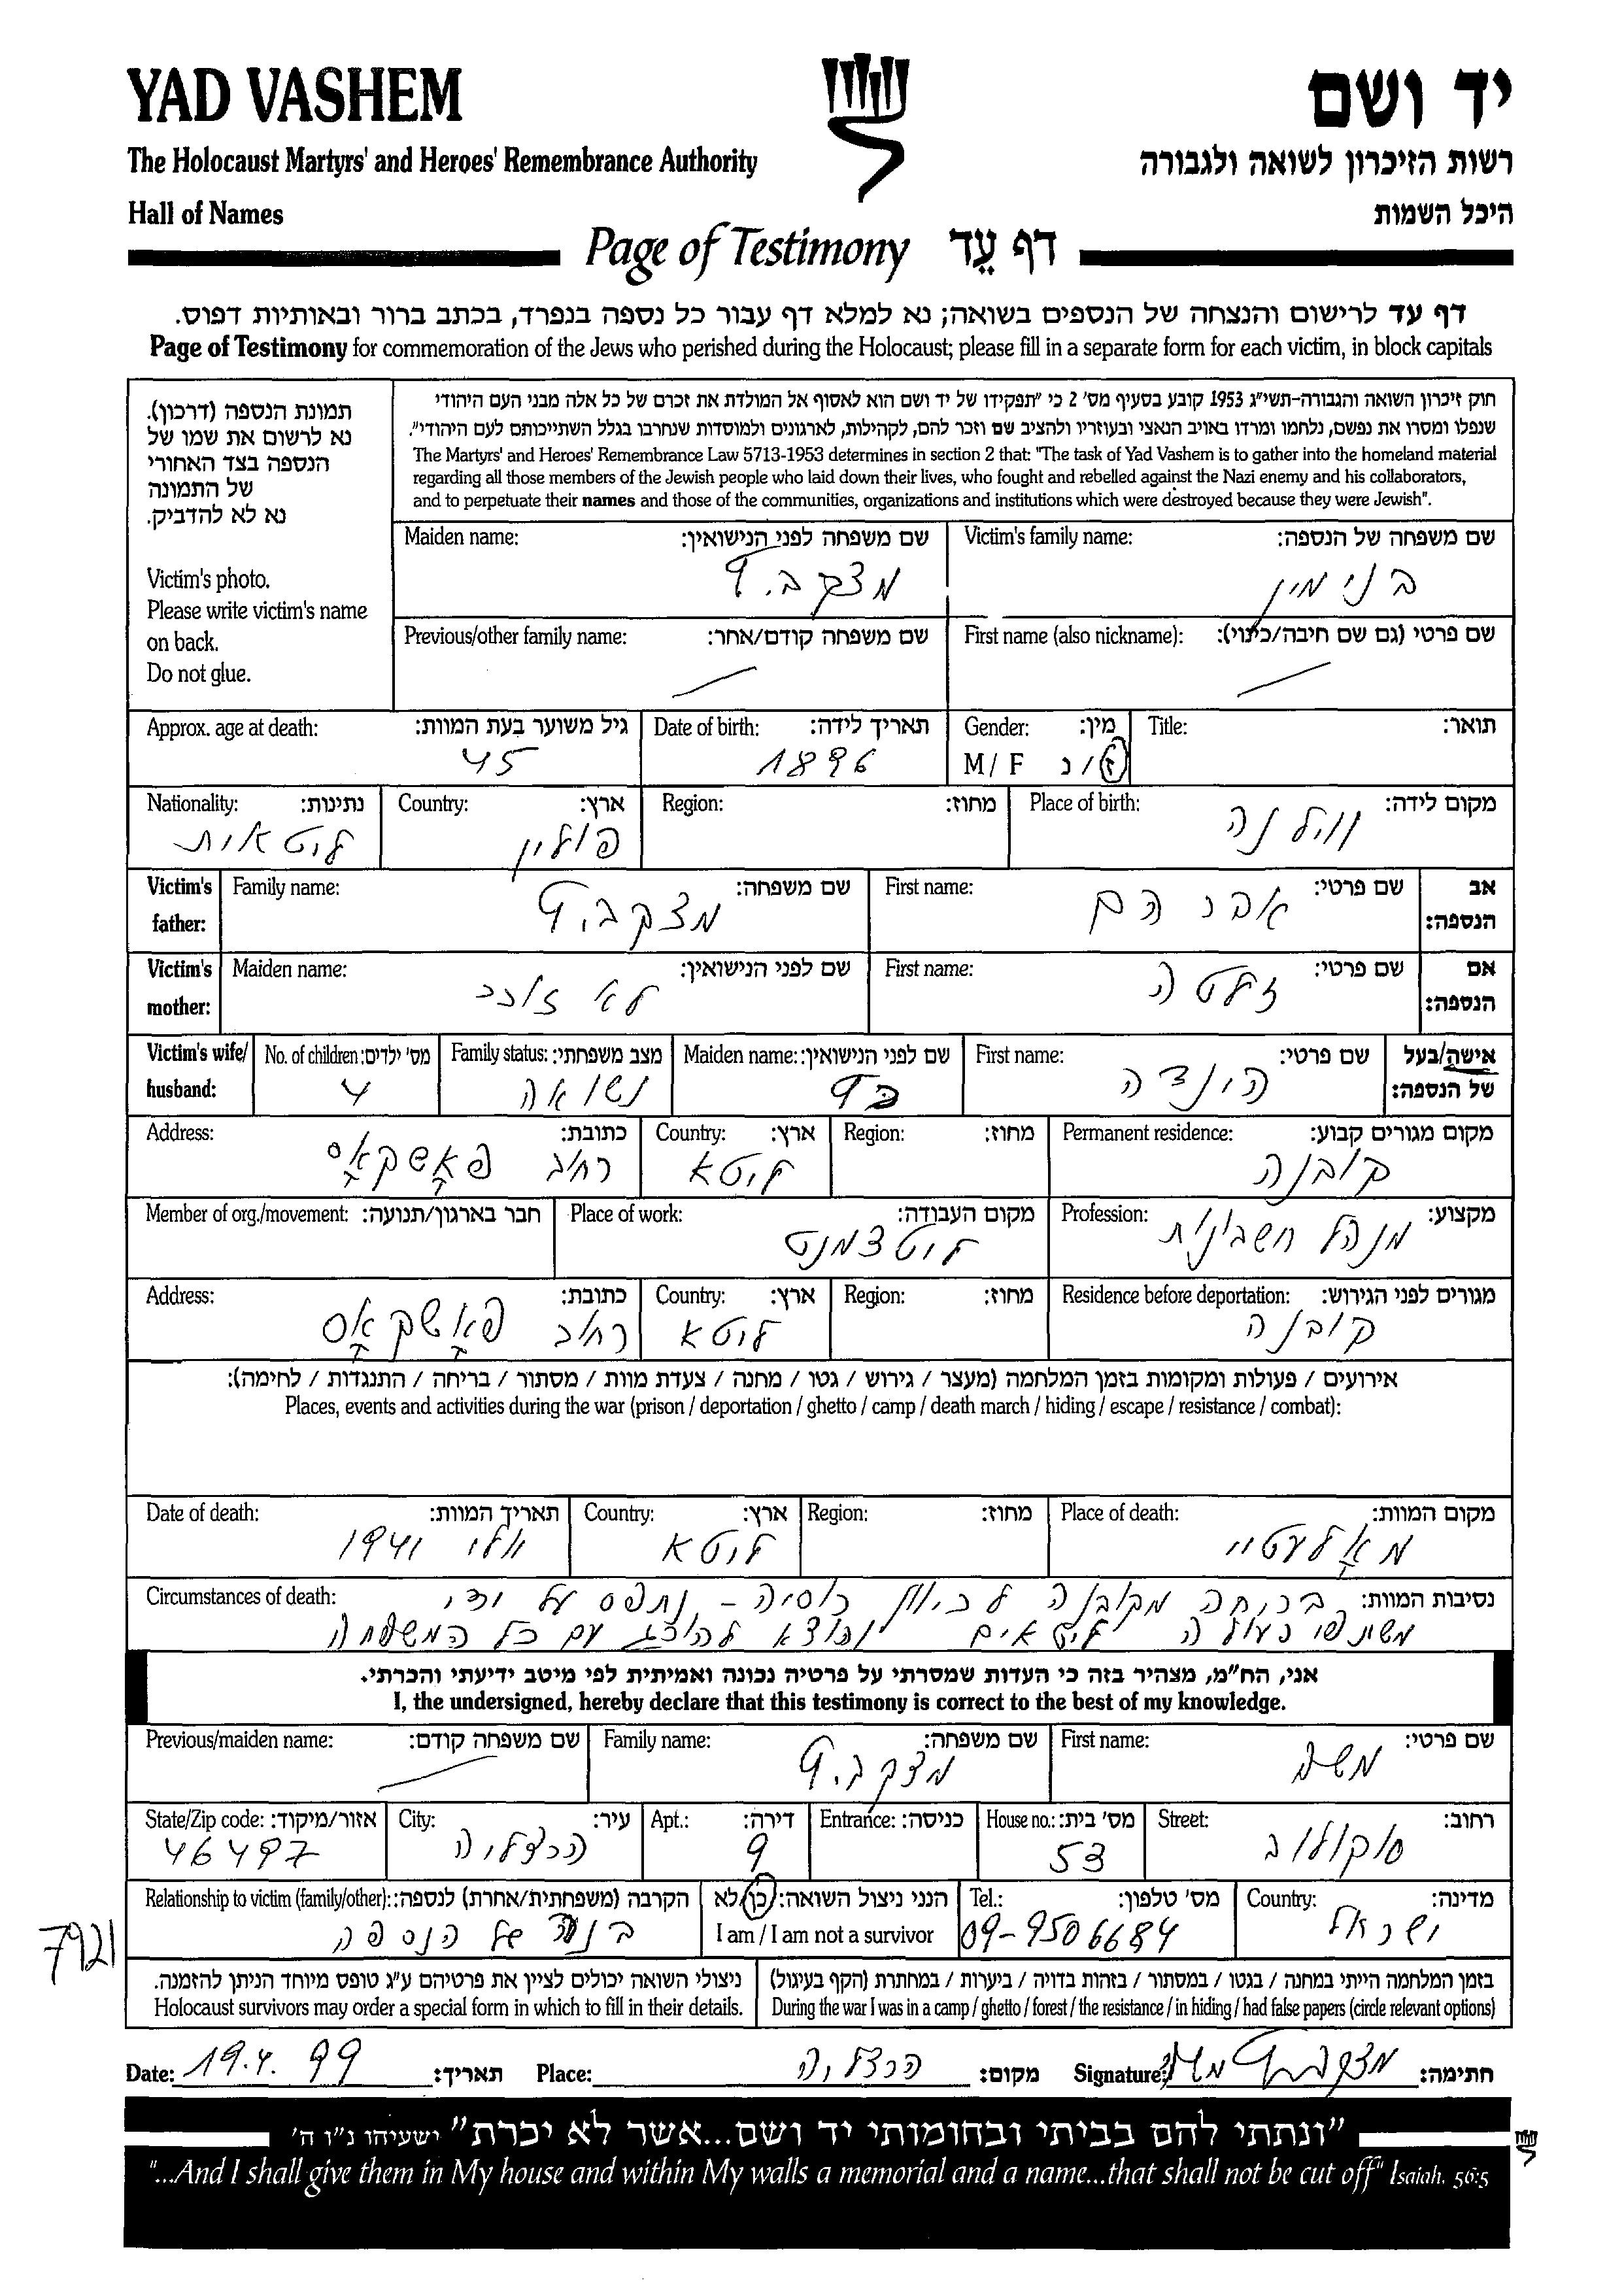 YAD VASHEM
יד ושם
The Holocaust Martyrs' and Heroes' Remembrance Authority
רשות הזיכרון לשואה ולגבורה
Hall of Names
היכל השמות
Page of Testimony דף עֵד
דף עד לרישום והנצחה של הנספים בשואה; נא למלא דף עבור כל נספה בנפרד, בכתב ברור ובאותיות דפוס.
Page of Testimony for commemoration of the Jews who perished during the Holocaust; please fill in a separate form for each victim, in block capitals
תמונת הנספה (דרכון).
נא לרשום את שמו של
הנספה בצד האחורי
של התמונה
נא לא להדביק.
Victim's photo.
Please write victim's name
on back.
Do not glue.
חוק זיכרון השואה והגבורה-תשי"ג 1953 קובע בסעיף מס' 2 כי "תפקידו של יד ושם הוא לאסוף אל המולדת את זכרם של כל אלה מבני העם היהודי
שנפלו ומסרו את נפשם, נלחמו ומרדו באויב הנאצי ובעוזריו ולהציב שם וזכר להם, לקהילות, לארגונים ולמוסדות שנחרבו בגלל השתייכותם לעם היהודי".
The Martyrs' and Heroes' Remembrance Law 5713-1953 determines in section 2 that: "The task of Yad Vashem is to gather into the homeland material
regarding all those members of the Jewish people who laid down their lives, who fought and rebelled against the Nazi enemy and his collaborators,
and to perpetuate their names and those of the communities, organizations and institutions which were destroyed because they were Jewish".
Victim's family name: שם משפחה של הנספה:
בנימין
Maiden name: שם משפחה לפני הנישואין:
מצקביץ
First name (also nickname): שם פרטי (גם שם חיבה/כינוי):
Previous/other family name: שם משפחה קודם/אחר:
Title: תואר:
Gender: מין:
M / F ז / נ
Date of birth: תאריך לידה:
1896
Approx. age at death: גיל משוער בעת המוות:
45
Place of birth: מקום לידה:
ווילנה
Region: מחוז:
Country: ארץ:
פולין
Nationality: נתינות:
ליטאית
Victim's father: אב הנספה:
First name: שם פרטי:
אברהם
Family name: שם משפחה:
מצקביץ
Victim's mother: אם הנספה:
First name: שם פרטי:
זלטה
Maiden name: שם לפני הנישואין:
לא זוכר
Victim's wife/ husband: אישה/בעל של הנספה:
First name: שם פרטי:
הינדה
Maiden name: שם לפני הנישואין:
כץ
Family status: מצב משפחתי:
נשואה
No. of children: מס' ילדים:
4
Permanent residence: מקום מגורים קבוע:
קובנה
Region: מחוז:
Country: ארץ:
ליטא
Address: כתובת:
רחוב פאָשקאָס
Profession: מקצוע:
מנהל חשבונות
Place of work: מקום העבודה:
ליטצמנט
Member of org./movement: חבר בארגון/תנועה:
Residence before deportation: מגורים לפני הגירוש:
קובנה
Region: מחוז:
Country: ארץ:
ליטא
Address: כתובת:
רחוב פאָשקאָס
אירועים / פעולות ומקומות בזמן המלחמה (מעצר / גירוש / גטו / מחנה / צעדת מוות / מסתור / בריחה / התנגדות / לחימה):
Places, events and activities during the war (prison / deportation / ghetto / camp / death march / hiding / escape / resistance / combat):
Place of death: מקום המוות:
מאָלעטיי
Region: מחוז:
Country: ארץ:
ליטא
Date of death: תאריך המוות:
יולי 1941
Circumstances of death: נסיבות המוות:
בריחה מקובנה לכיוון רוסיה - נתפס על ידי
משתפי פעולה ליטאים והוצא להורג עם כל המשפחה
אני, הח"מ, מצהיר בזה כי העדות שמסרתי על פרטיה נכונה ואמיתית לפי מיטב ידיעתי והכרתי.
I, the undersigned, hereby declare that this testimony is correct to the best of my knowledge.
First name: שם פרטי:
משה
Family name: שם משפחה:
מצקביץ
Previous/maiden name: שם משפחה קודם:
Street: רחוב:
סוקולוב
House no.: מס' בית:
53
Entrance: כניסה:
Apt.: דירה:
9
City: עיר:
הרצליה
State/Zip code: אזור/מיקוד:
46497
Country: מדינה:
ישראל
Tel.: מס' טלפון:
09-9506684
הנני ניצול השואה: כן/לא
I am / I am not a survivor
Relationship to victim (family/other): הקרבה (משפחתית/אחרת) לנספה:
של הנספה
7921
בזמן המלחמה הייתי במחנה / בגטו / במסתור / בזהות בדויה / ביערות / במחתרת (הקף בעיגול)
During the war I was in a camp / ghetto / forest / the resistance / in hiding / had false papers (circle relevant options)
ניצולי השואה יכולים לציין את פרטיהם ע"ג טופס מיוחד הניתן להזמנה.
Holocaust survivors may order a special form in which to fill in their details.
Date: 19.4.99 תאריך: Place: הרצליה מקום: Signature: מצקביץ משה חתימה:
"ונתתי להם בביתי ובחומותי יד ושם...אשר לא יכרת" ישעיהו נ"ו ה'
"...And I shall give them in My house and within My walls a memorial and a name...that shall not be cut off" Isaiah. 56:5